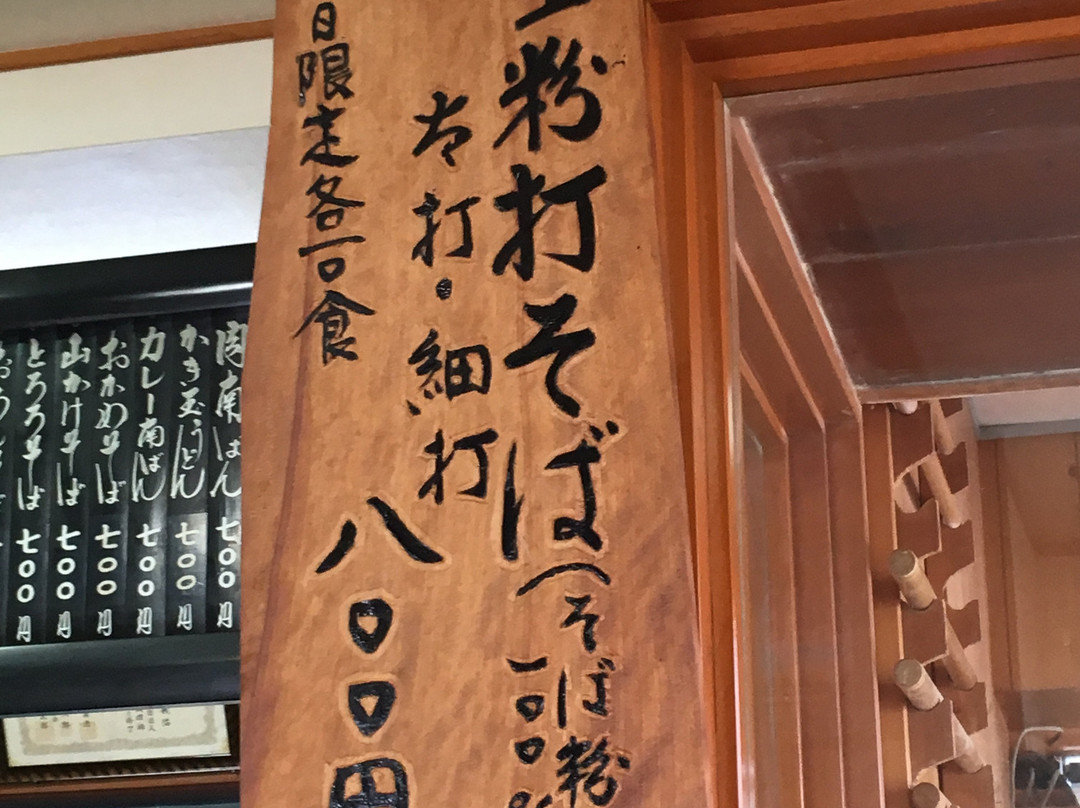 粉打そば(そば粉
一〇〇
太打・細打
八〇〇円
日限定各一〇食
肉南ばん 七〇〇円
かき玉うどん 七〇〇円
カレー南ばん 七〇〇円
おかめそば 七〇〇円
山かけそば 七〇〇円
とろろそば 七〇〇円